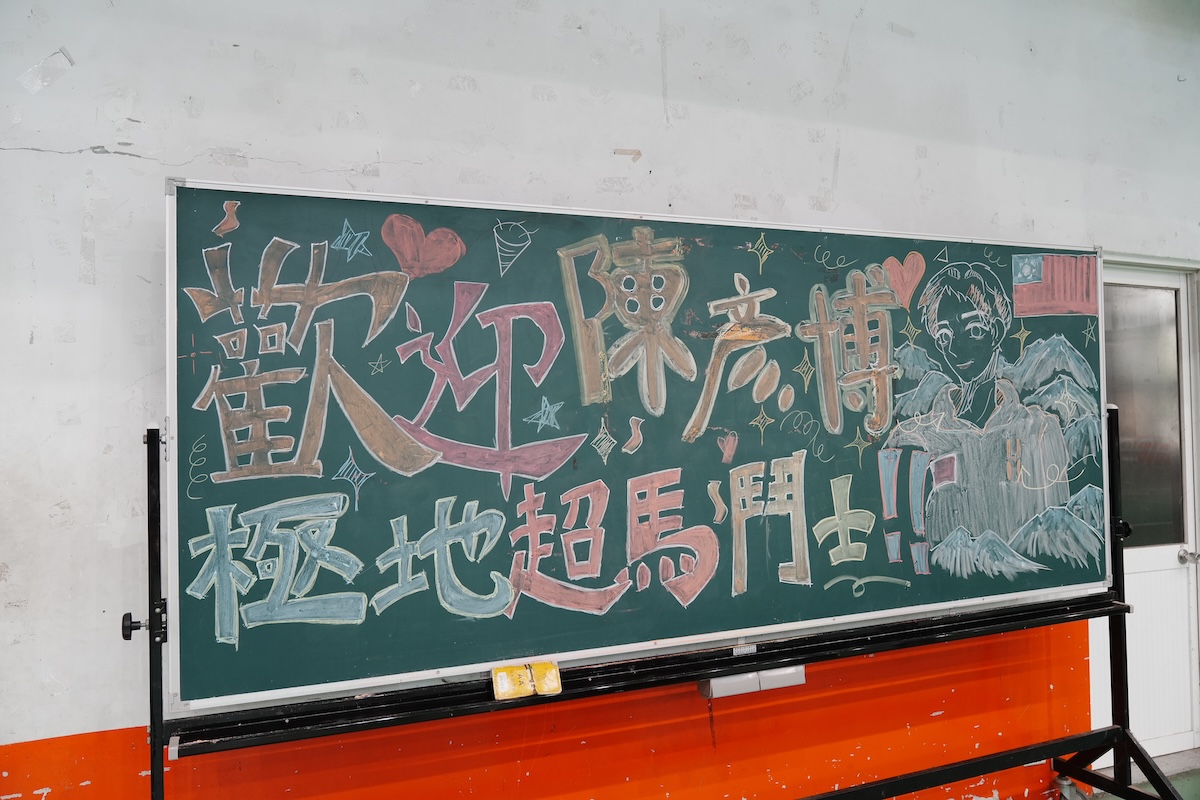 歡迎陳彥博
極地超馬鬥士!!